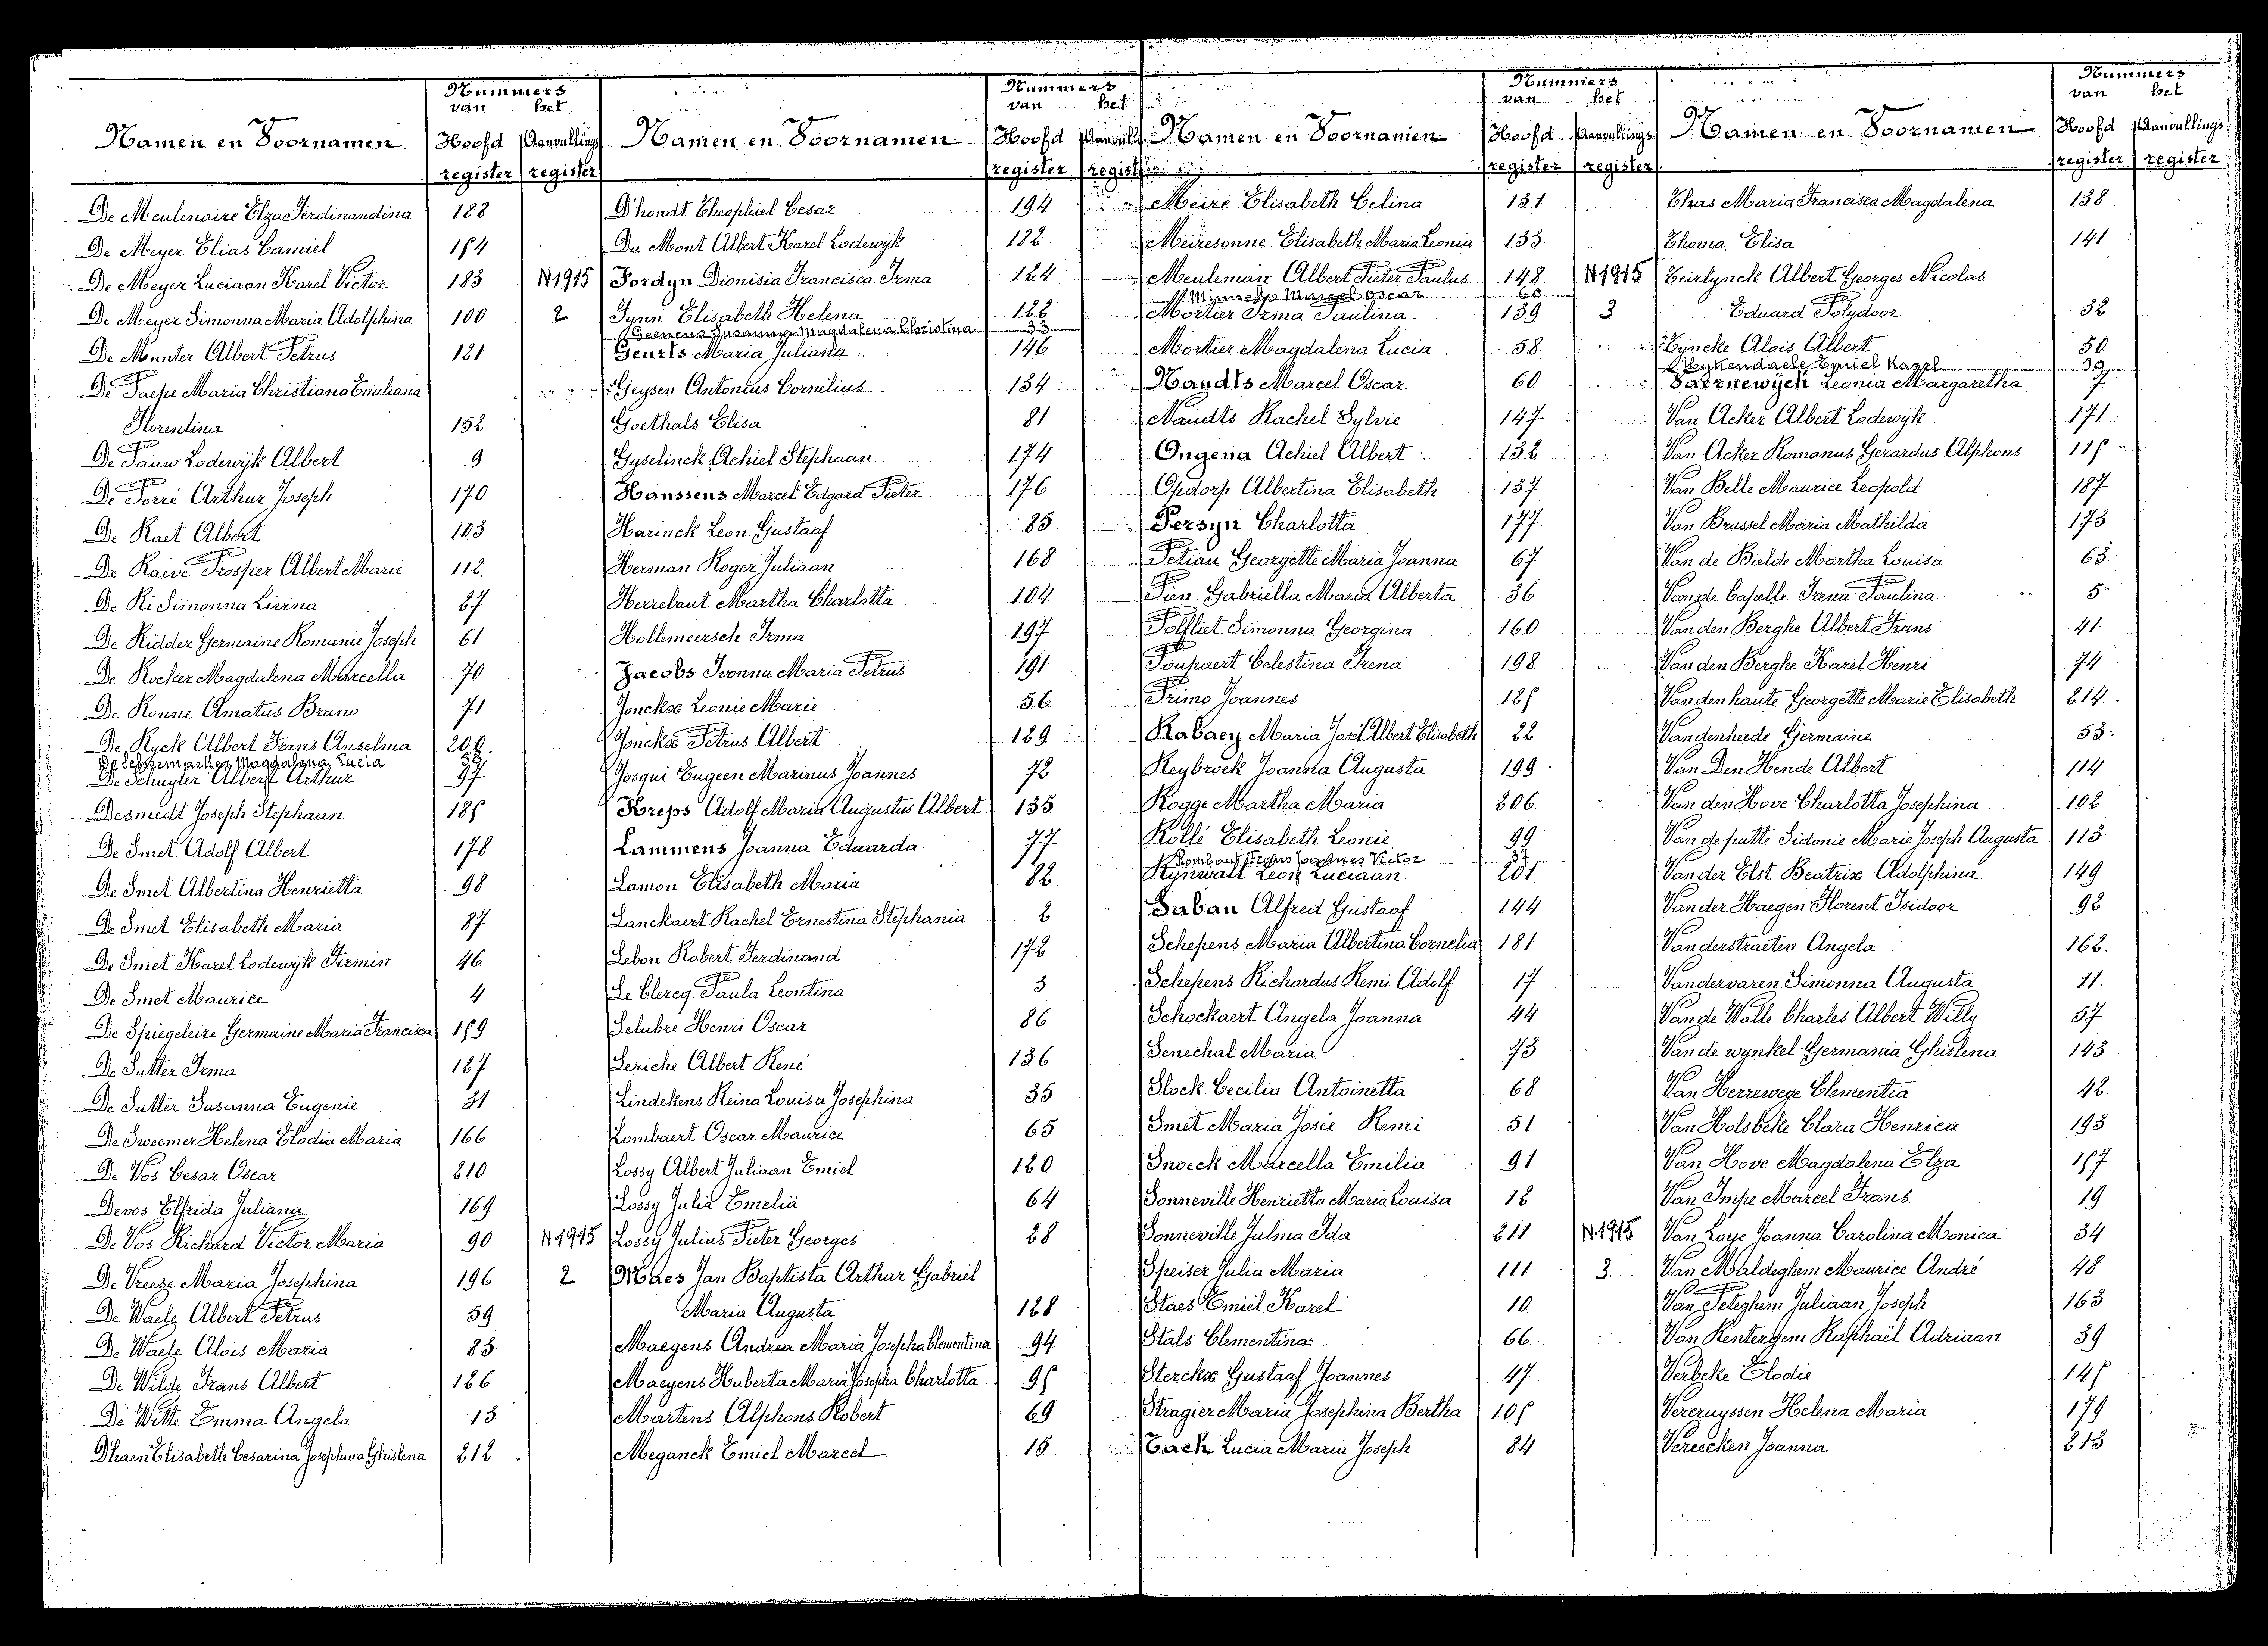 Nummers
van het
Namen en Voornamen Hoofd register Aanvullings register
De Meulenaire Elza Ferdinandina 188
De Meyer Elias Camiel 154
De Meyer Luciaan Karel Victor 183
De Meyer Simonna Maria Adolphina 100
De Munter Albert Petrus 121
De Paepe Maria Christiana Emiliana
Florentina 152
De Pauw Lodewijk Albert 9
De Porré Arthur Joseph 170
De Raet Albert 103
De Raeve Prosper Albert Marie 112
De Ri Simonna Livina 27
De Ridder Germaine Romanie Joseph 61
De Rocker Magdalena Marcella 70
De Ronne Amatus Bruno 71
De Ryck Albert Frans Anselma 200
De Schuyter Albert Arthur 97
Desmedt Joseph Stephaan 185
De Smet Adolf Albert 178
De Smet Albertina Henrietta 98
De Smet Elisabeth Maria 87
De Smet Karel Lodewijk Firmin 46
De Smet Maurice 4
De Spiegeleire Germaine Maria Francisca 159
De Sutter Irma 127
De Sutter Susanna Eugenie 31
De Sweemer Helena Elodia Maria 166
De Vos Cesar Oscar 210
Devos Elfrida Juliana 169
De Vos Richard Victor Maria 90
De Vreeze Maria Josephina 196
De Waele Albert Petrus 59
De Waele Alois Maria 83
De Wilde Frans Albert 126
De Witte Emma Angela 13
Dhaen Elisabeth Cesarina Josephina Ghislena 212
Nummers
van het
Namen en Voornamen Hoofd register
D'hondt Theophiel Cesar 194
Du Mont Albert Karel Lodewijk 182
N1915 Fordyn Dionisia Francisca Irma 124
2 Fynn Elisabeth Helena 122
Geenens Susanna Magdalena Christina 33
Geurts Maria Juliana 146
Geysen Antonius Cornelius 134
Goethals Elisa 81
Gyselinck Achiel Stephaan 174
Hanssens Marcel Edgard Pieter 176
Harinck Leon Gustaaf 85
Herman Roger Juliaan 168
Herrebaut Martha Charlotta 104
Hollemeersch Irma 197
Jacobs Ivonna Maria Petrus 191
Jonckx Leonie Marie 56
Jonckx Petrus Albert 129
Josqui Eugeen Marinus Joannes 72
Kreps Adolf Maria Augustus Albert 135
Lammens Joanna Eduarda 77
Lamon Elisabeth Maria 82
Lanckaert Rachel Ernestina Stephania 2
Lebon Robert Ferdinand 172
Le Clercq Paula Leontina 3
Lelubre Henri Oscar 86
Leriche Albert René 136
Lindekens Reina Louisa Josephina 35
Lombaert Oscar Maurice 65
Lossy Albert Juliaan Emiel 120
Lossy Julia Emelia 64
N1915 Lossy Julius Pieter Georges 28
2 Maes Jan Baptista Arthur Gabriel
Maria Augusta 128
Maeyens Andrea Maria Josepha Clementina 94
Maeyens Huberta Maria Josepha Charlotta 95
Martens Alphons Robert 69
Meganck Emiel Marcel 15
Nummers
van het
Namen en Voornamen Hoofd register Aanvullings register
Meire Elisabeth Celina 131
Meiresonne Elisabeth Maria Leonia 133
Meuleman Albert Pieter Paulus 148
Mortier Irina Paulina 139
Mortier Magdalena Lucia 58
Nandts Marcel Oscar 60
Nandts Rachel Sylvie 147
Ongena Achiel Albert 132
Opdorp Albertina Elisabeth 137
Persyn Charlotta 177
Petiau Georgette Maria Joanna 67
Pien Gabriella Maria Alberta 36
Polfliet Simonna Georgina 160
Poupaert Celestina Irena 198
Primo Joannes 125
Rabaey Maria José Albert Elisabeth 22
Reybroek Joanna Augusta 199
Rogge Martha Maria 206
Rollé Elisabeth Leonie 99
Rynwalt Leon Luciaan 201
Saban Alfred Gustaaf 144
Schepens Maria Albertina Cornelia 181
Schepens Richardus Remi Adolf 17
Schockaert Angela Joanna 44
Senechal Maria 73
Slock Cecilia Antoinetta 68
Smet Maria Josée Remi 51
Snoeck Marcella Emilia 91
Sonneville Henrietta Maria Louisa 12
Sonneville Julma Ida 211
Speiser Julia Maria 111
Staes Emiel Karel 10
Stals Clementina 66
Sterckx Gustaaf Joannes 47
Stragier Maria Josephina Bertha 105
Tack Lucia Maria Joseph 84
Nummers
van het
Namen en Voornamen Hoofd register Aanvullings register
Thas Maria Francisca Magdalena 138
Thoma Elisa 141
N1915 Teirlynck Albert Georges Nicolas
3 Eduard Polydoor 32
Tyncke Alois Albert 50
Uyttendaele Emiel Karel 29
Vaernewijck Leonia Margaretha 7
Van Acker Albert Lodewijk 171
Van Acker Romanus Gerardus Alphons 115
Van Belle Maurice Leopold 187
Van Brussel Maria Mathilda 173
Van de Bielde Martha Louisa 63
Van de Capelle Irena Paulina 5
Van den Berghe Albert Frans 41
Van den Berghe Karel Henri 74
Vandenhaute Georgette Marie Elisabeth 214
Vandenheede Germaine 53
Van Den Hende Albert 114
Van den Hove Charlotta Josephina 102
Van de putte Sidonie Marie Joseph Augusta 113
Van der Elst Beatrix Adolphina 149
Van der Haegen Florent Isidoor 92
Vanderstraeten Angela 162
Vandervaren Simonna Augusta 11
Van de Walle Charles Albert Willy 57
Van de wynkel Germania Ghislena 143
Van Herrewege Clementia 42
Van Holsbeke Clara Henrica 193
Van Hove Magdalena Elza 157
Van Impe Marcel Frans 19
N1915 Van Loye Joanna Carolina Monica 34
3. Van Maldeghem Maurice André 48
Van Peteghem Juliaan Joseph 163
Van Rentergem Raphaël Adriaan 39
Verbeke Elodie 145
Vercruyssen Helena Maria 179
Vereecken Joanna 213